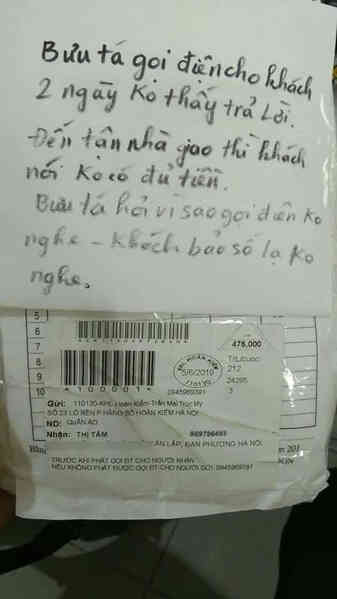 Bưu tá gọi điện cho khách
2 ngày Ko thấy trả Lời.
Đến tận nhà giao thì khách
nói Ko có đủ tiền.
Bưu tá hỏi vì sao gọi điện Ko
nghe - Khách bảo số lạ Ko
nghe.
5
6
7
8
9
10
476,000
5/6/2010
212
24265
3
0945969391
4100001
Gửi: 110130-KHL Hoàn Kiếm-Trần Mai Trúc My
SỐ 23 LÒ RÈN P HÀNG BỒ HOÀN KIẾM HÀ NỘI
ND: QUẦN ÁO
Nhận: THỊ TÂM
LẬP, ĐAN PHƯỢNG HÀ NỘI
TRƯỚC KHI PHÁT GỌI ĐT CHO NGƯỜI NHẬN
NẾU KHÔNG PHÁT ĐƯỢC GỌI ĐT CHO NGƯỜI GỬI: